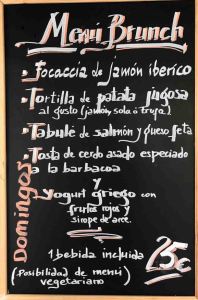 Menú Brunch
· Focaccia de jamón iberico
· Tortilla de patata jugosa
al gusto (jamón, sola ó trufa)
· Tabulé de salmón y queso feta
· Tosta de cerdo asado especiado
a la barbacoa
y
Yogurt griego con
frutos rojos y
sirope de arce.
Domingos
1 bebida incluida
25€
(Posibilidad de menú
vegetariano)